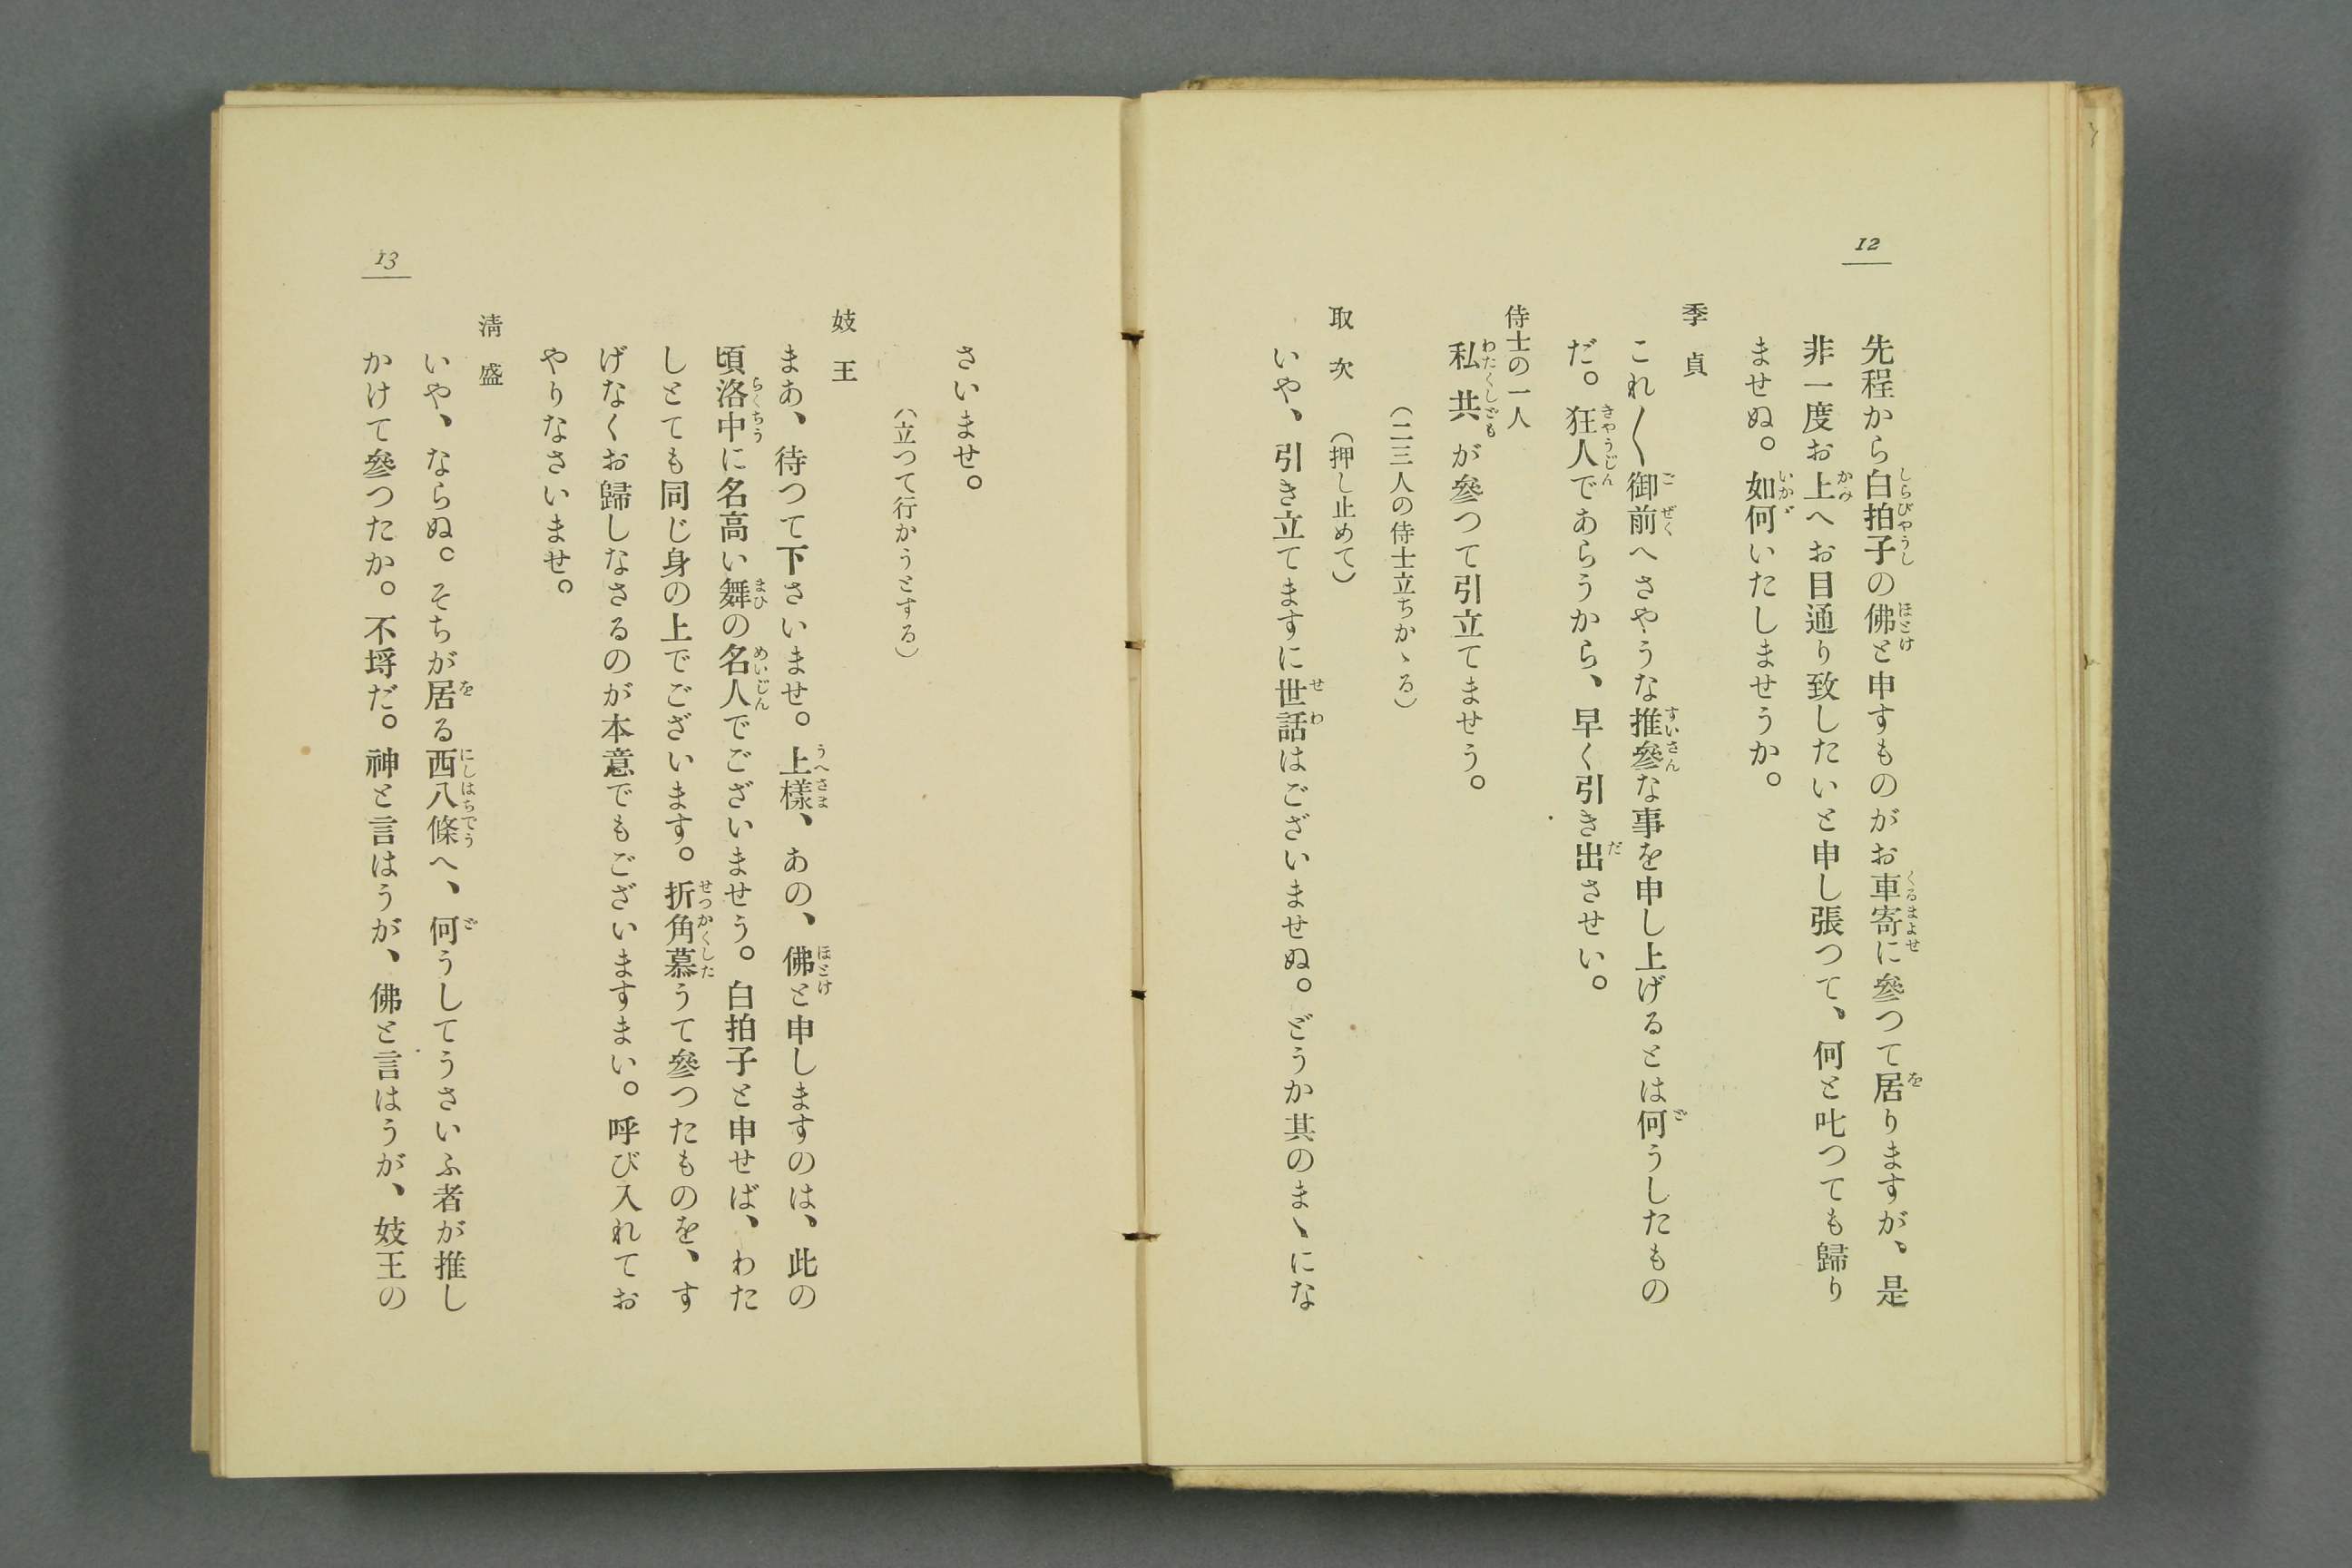 12
先程から白拍子の佛と申すものがお車寄に參つて居りますが、是
非一度お上へお目通り致したいと申し張つて、何と叱つても歸り
ませぬ。如何いたしませうか。
季貞
これ〱御前へさやうな推參な事を申し上げるとは何うしたもの
だ。狂人であらうから、早く引き出させい。
侍士の一人
私共が參つて引立てませう。
（二三人の侍士立ちかゝる）
取次（押し止めて）
いや、引き立てますに世話はございませぬ。どうか其のまゝにな
さいませ。
（立つて行かうとする）
妓王
まあ、待つて下さいませ。上樣、あの、佛と申しますのは、此の
頃洛中に名高い舞の名人でございませう。白拍子と申せば、わた
しとても同じ身の上でございます。折角慕うて參つたものを、す
げなくお歸しなさるのが本意でもございますまい。呼び入れてお
やりなさいませ。
淸盛
いや、ならぬ。そちが居る西八條へ、何うしてうさいふ者が推し
かけて參つたか。不埒だ。神と言はうが、佛と言はうが、妓王の
13